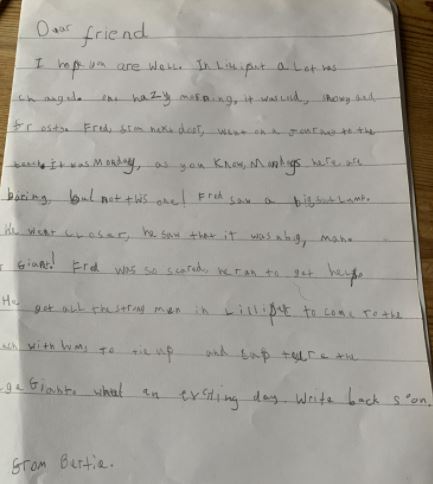 Dear friend
I hope you are well. In Lilliput a Lot has
changed. one hazy morning, it was cold, snowy and
frosty. Fred, from next door, went on a journey to the
It was Monday, as you know, Mondays here are
boring, but not this one! Fred saw a big Lump.
He went closer, he saw that it was a big, man.
Giant! Fred was so scared, he ran to get help.
He got all the strong men in Lilliput to come to the
with him, to tie up and the
Giant. what an exciting day. Write back soon.
from Bertie.